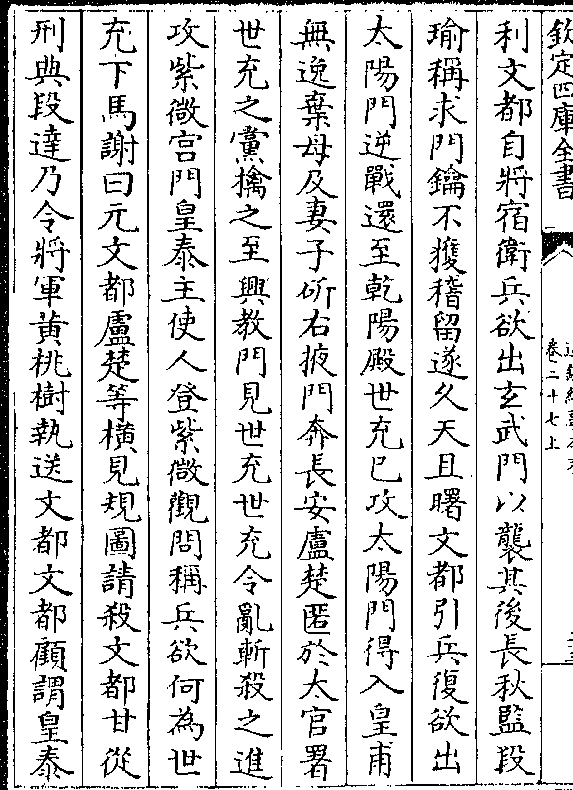 欽定四庫全書
卷二十七上
利文都自將宿衛兵欲出玄武門以襲其後長秋監段
瑜稱求門鑰不獲稽留遂久天且曙文都引兵復欲出
太陽門逆戰還至乾陽殿世充已攻太陽門得入皇甫
無逸棄母及妻子斫右掖門奔長安盧楚匿於太官署
世充之黨擒之至興教門見世充世充令亂斬殺之進
攻紫㣲宫門皇泰主使人登紫㣲觀問稱兵欲何為世
充下馬謝曰元文都盧楚等橫見規圖請殺文都甘從
刑典段達乃令將軍黄桃樹執送文都文都顧謂皇泰